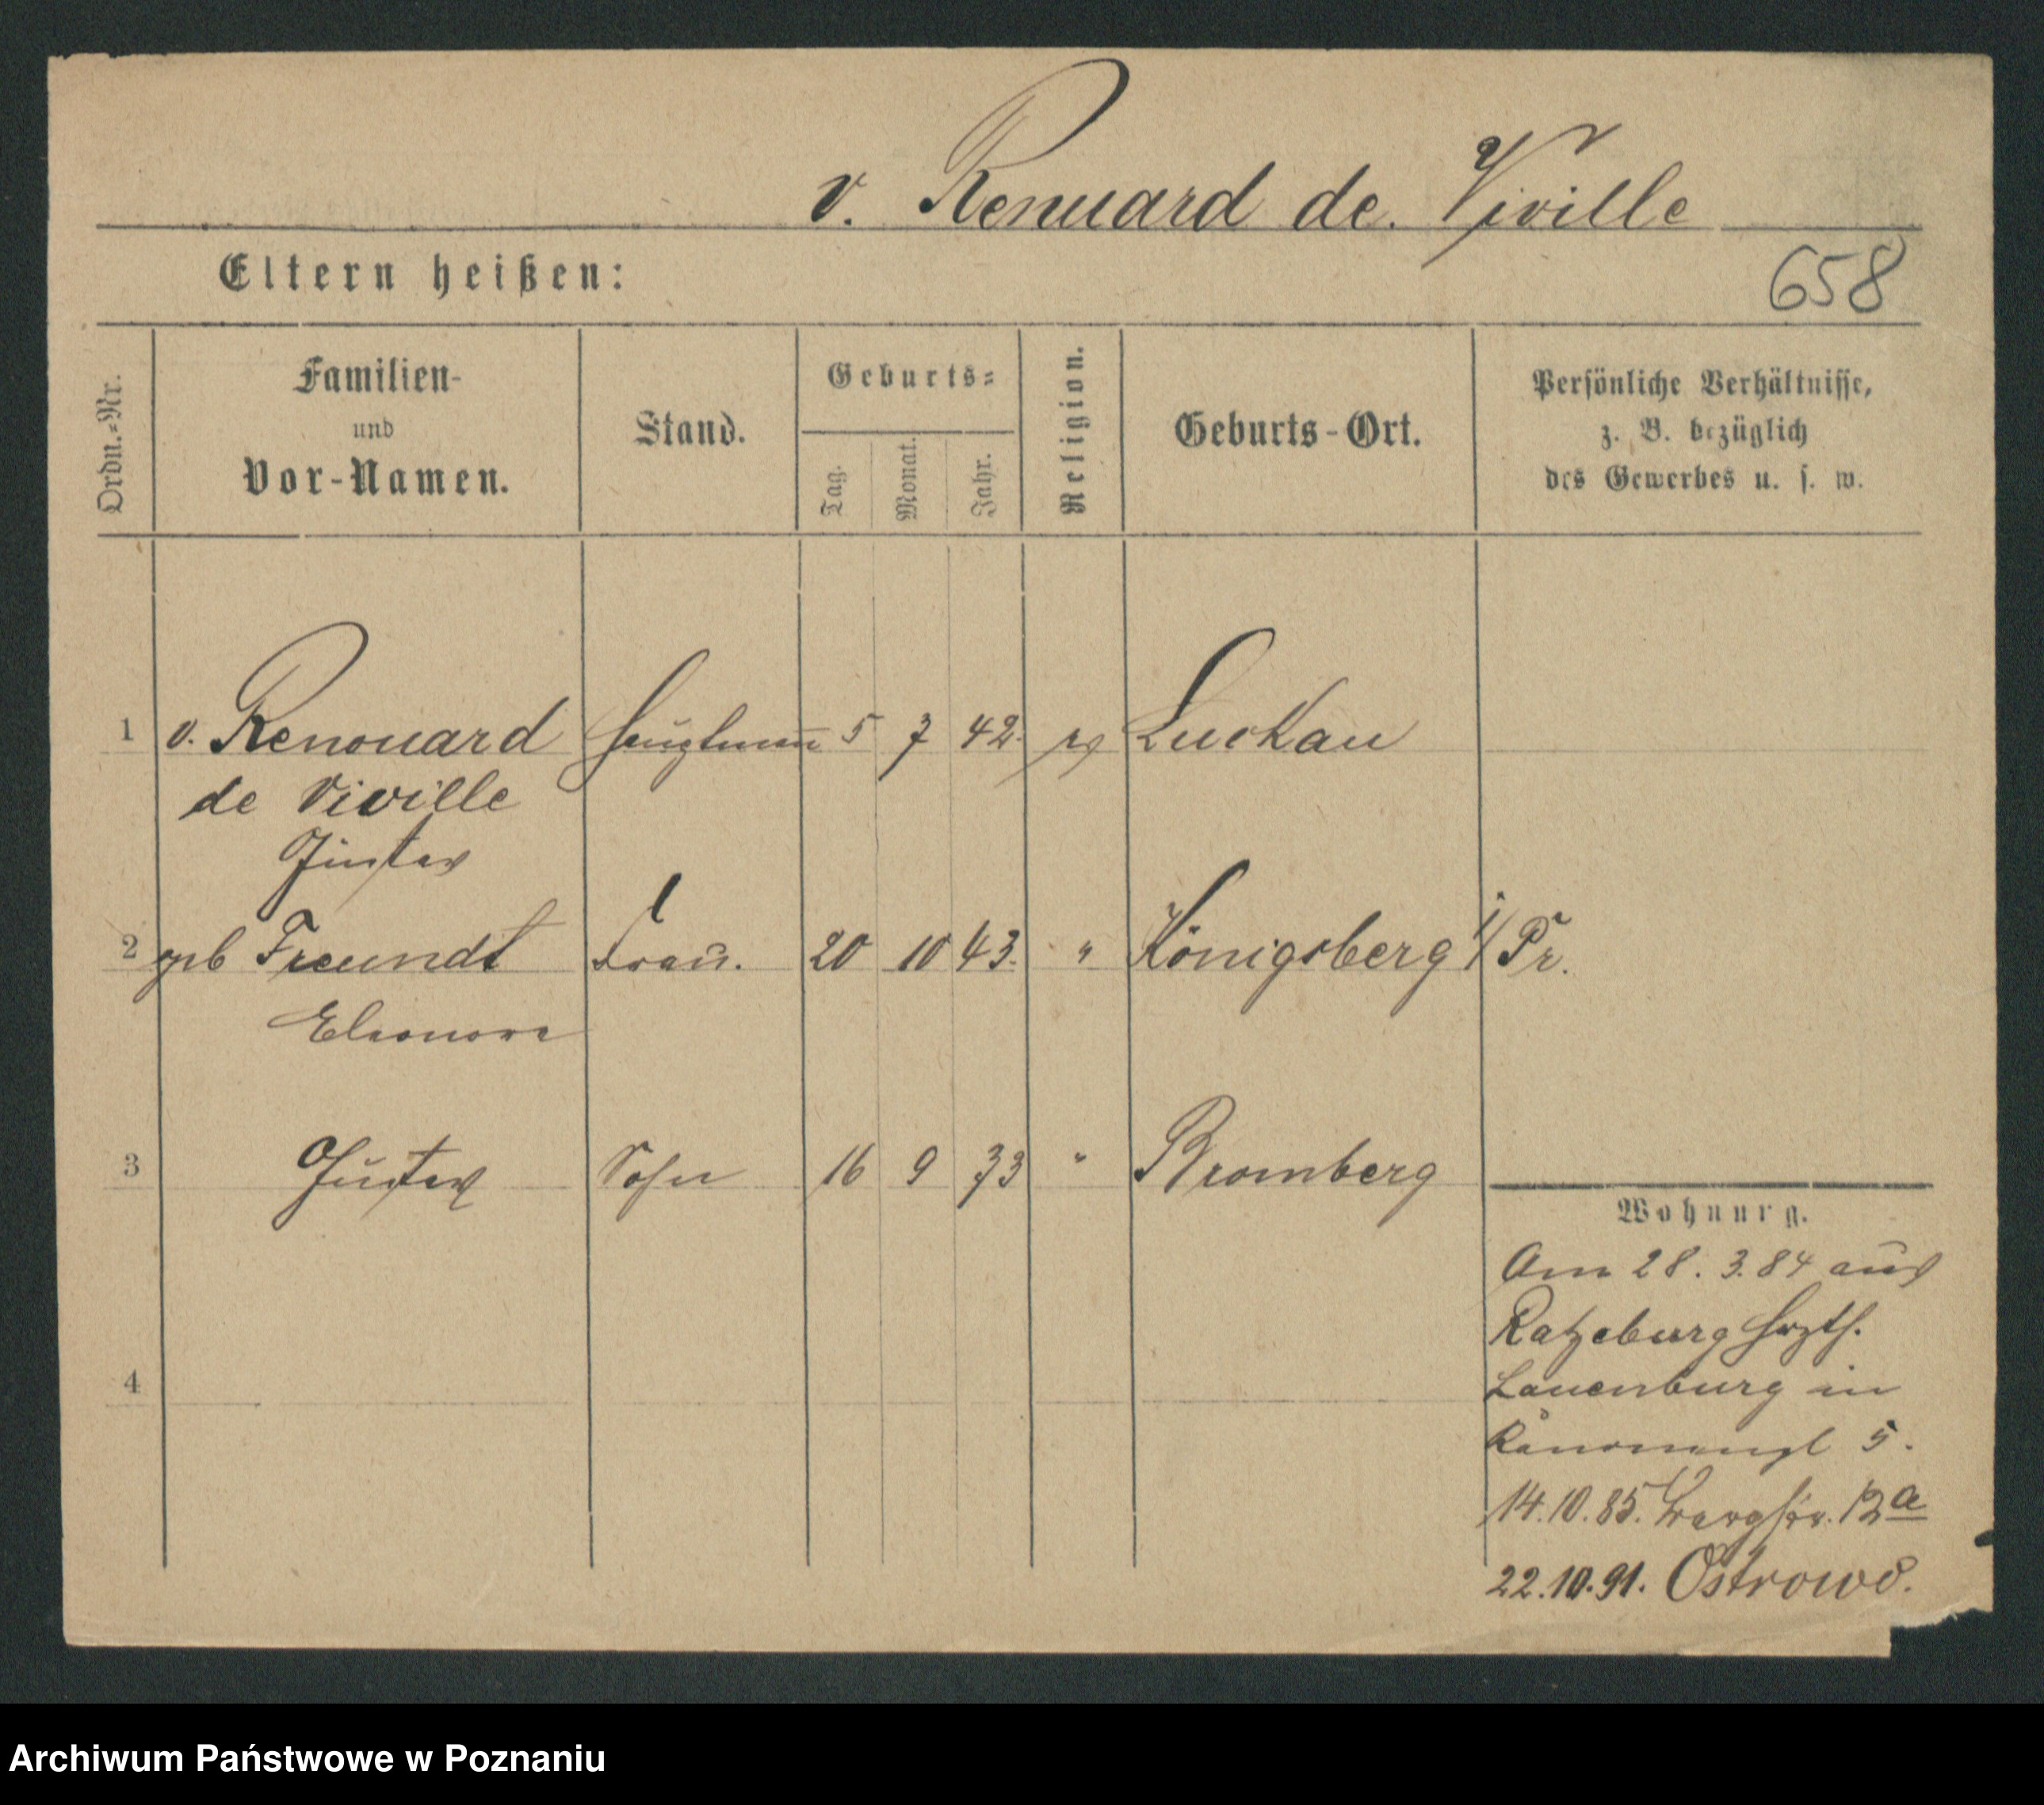 v. Renuard de. Viville
Eltern heißen:
658
Ordn.=Nr.
Familien-
und
Vor-Namen.
Stand.
Geburts=
Tag.
Monat.
Jahr.
Religion.
Geburts-Ort.
Persönliche Verhältnisse,
z. B. bezüglich
des Gewerbes u. s. w.
1 v. Renouard Hauptmann 5 7 42. Luckau
de Viville
Gustav
2 geb Freundt Frau. 20 10 43. " Königsberg i/Pr.
Eleonore
3 Gustav Sohn 16 9 73 " Bromberg
Wohnung.
Am 28. 3. 84 aus
Ratzeburg Hrzth.
Lauenburg in
4
Kanonenpl 5.
14.10.85. 12a
22.10.91. Ostrowo.
Archiwum Państwowe w Poznaniu